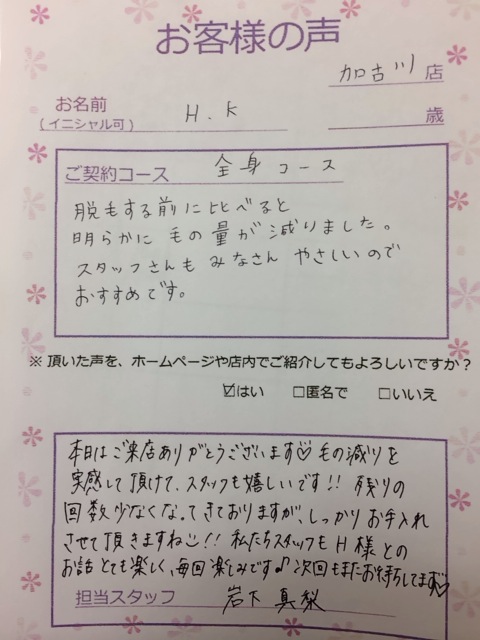 お客様の声
加古川 店
お名前 H.K
(イニシャル可) 歳
ご契約コース 全身コース
脱毛する前に比べると
明らかに毛の量が減りました。
スタッフさんもみなさんやさしいので
おすすめです。
※頂いた声を、ホームページや店内でご紹介してもよろしいですか？
☑はい □匿名で □いいえ
本日はご来店ありがとうございます♡毛の減りを
実感して頂けて、スタッフも嬉しいです!! 残りの
回数少なくなってきておりますが、しっかりお手入れ
させて頂きますね!! 私たちスタッフもH様との
お話とても楽しく、毎回楽しみです♪次回もまたお待ちしてます♡
担当スタッフ 岩下 真梨